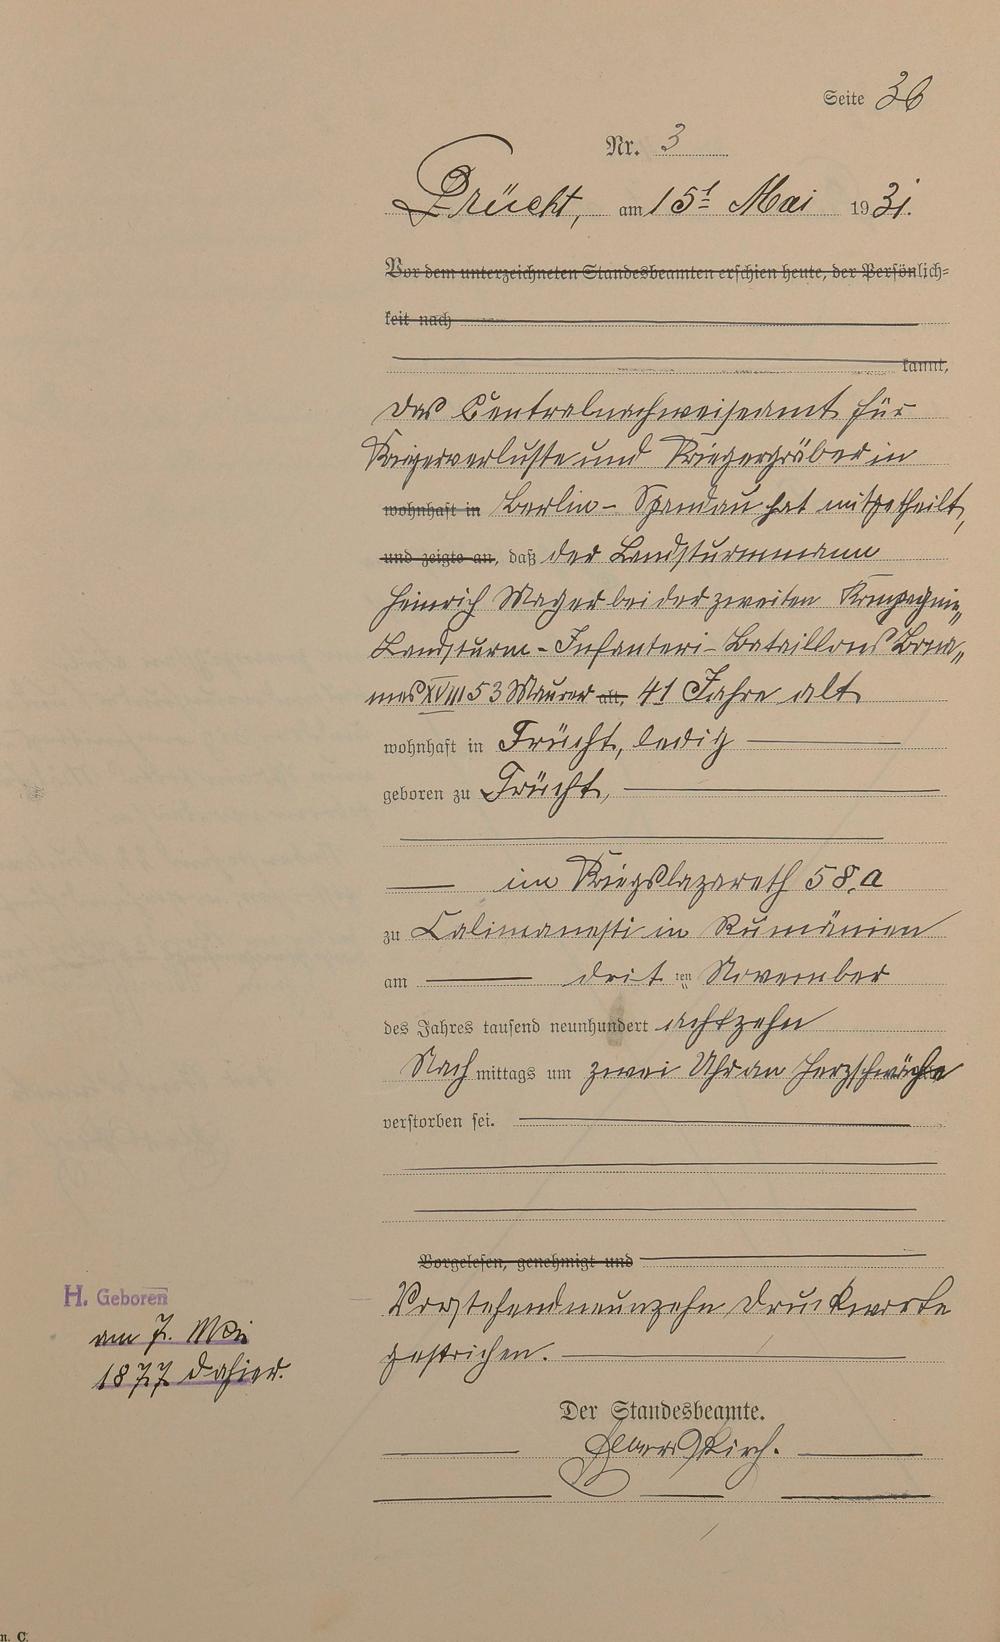 Seite 36
Nr. 3
Frücht, am 15t Mai 1931.
Vor dem unterzeichneten Standesbeamten erschien heute, der Persönlich=
keit nach
kannt,
Das Centralnachweiseamt für
Kriegerverluste und Kriegergräber in
wohnhaft in Berlin - Spandau hat mitgetheilt,
und zeigte an, daß der Landsturmmann
Heinrich Mager bei der zweiten Kompagnie„
Landsturm - Infanteri - Bataillons
XVIII 53 Maurer alt, 41 Jahre alt
wohnhaft in Frücht, ledig
geboren zu Frücht,
im Kriegslazareth 58. a
zu Calimanesti in Rumänien
am drit ten November
des Jahres tausend neunhundert achtzehn
Nachmittags um zwei Uhr an Herzschwäche
verstorben sei.
Vorgelesen, genehmigt und
Vorstehend neunzehn Druckworte
gestrichen.
Der Standesbeamte.
H. Geboren
am 7. Mai
1877 dahier.
n. C.